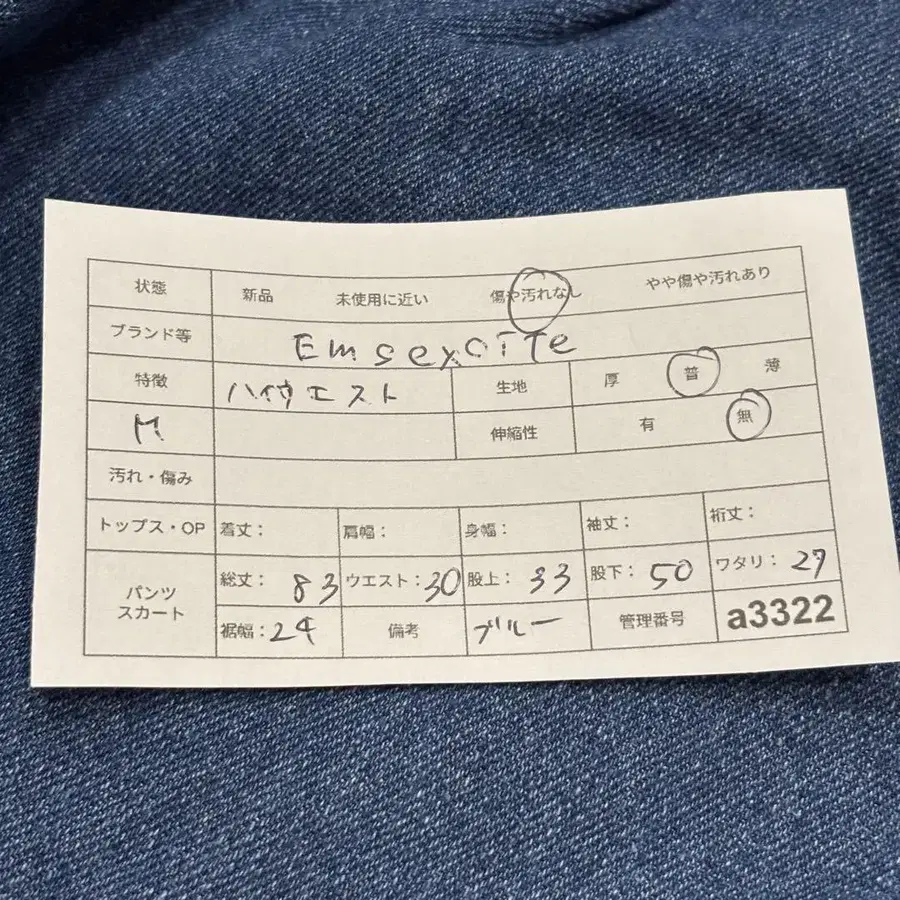 状態 新品 未使用に近い 傷や汚れなし やや傷や汚れあり
ブランド等 Emsexcite
特徴 ハイウエスト 生地 厚 普 薄
M 伸縮性 有 無
汚れ・傷み
トップス・OP 着丈: 肩幅: 身幅: 袖丈: 裄丈:
パンツ スカート 総丈: 83 ウエスト: 30 股上: 33 股下: 50 ワタリ: 27
裾幅: 24 備考 ブルー 管理番号 a3322